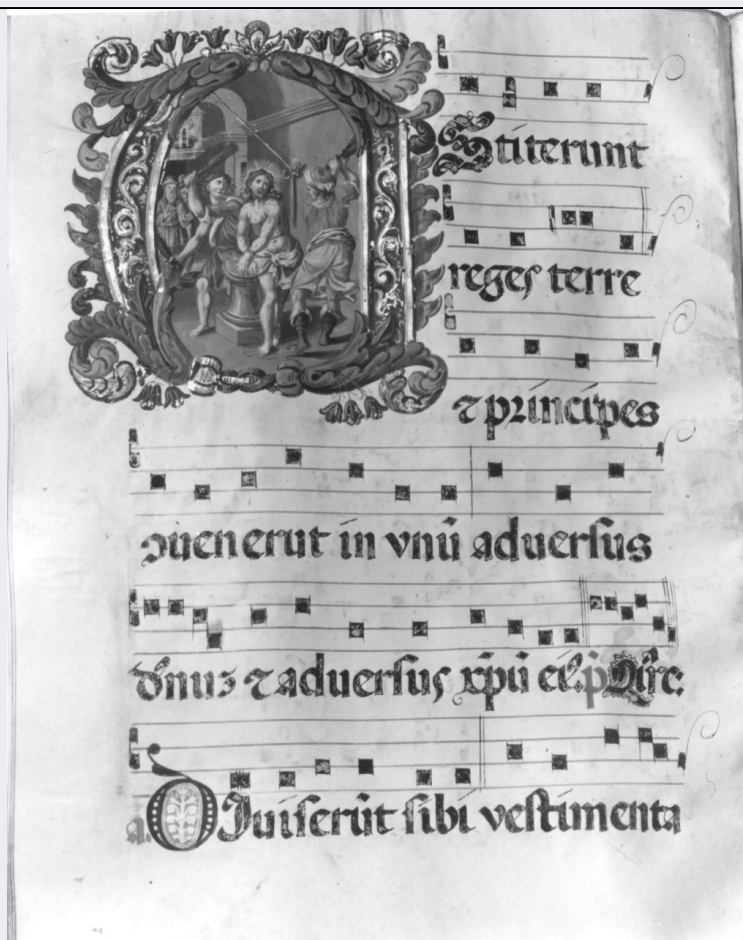 Astiterunt
reges terre
⁊ principes
ↄuenerūt in vnū aduersus
dn̄um ⁊ aduersus xp̄ū eiꝰ. p̄
Diuiserūt sibi vestimenta